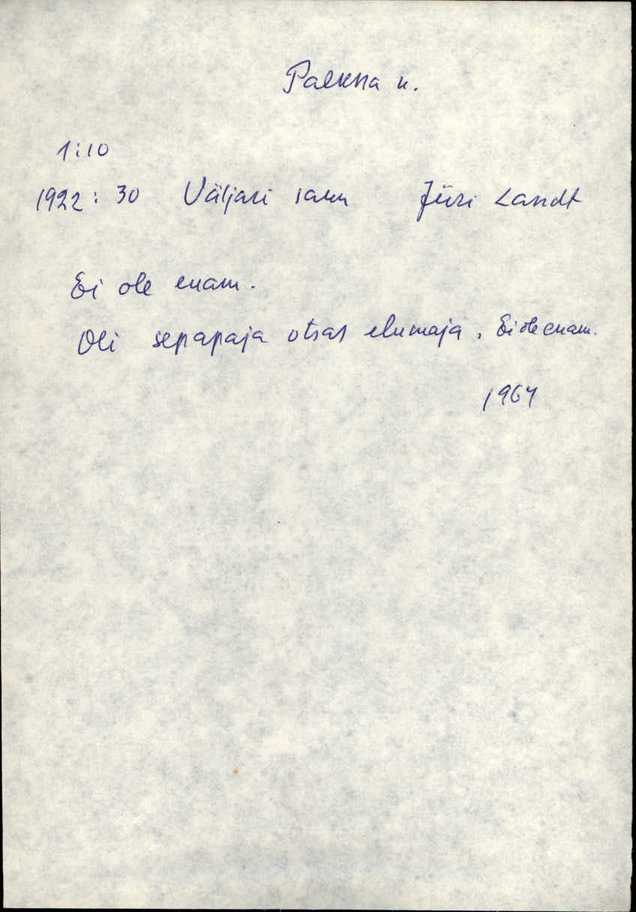 Palkna k.
1:10
1922: 30 Väljari saun Jüri Landt
Ei ole enam.
Oli sepapaja otsas elumaja. Ei ole enam.
1964